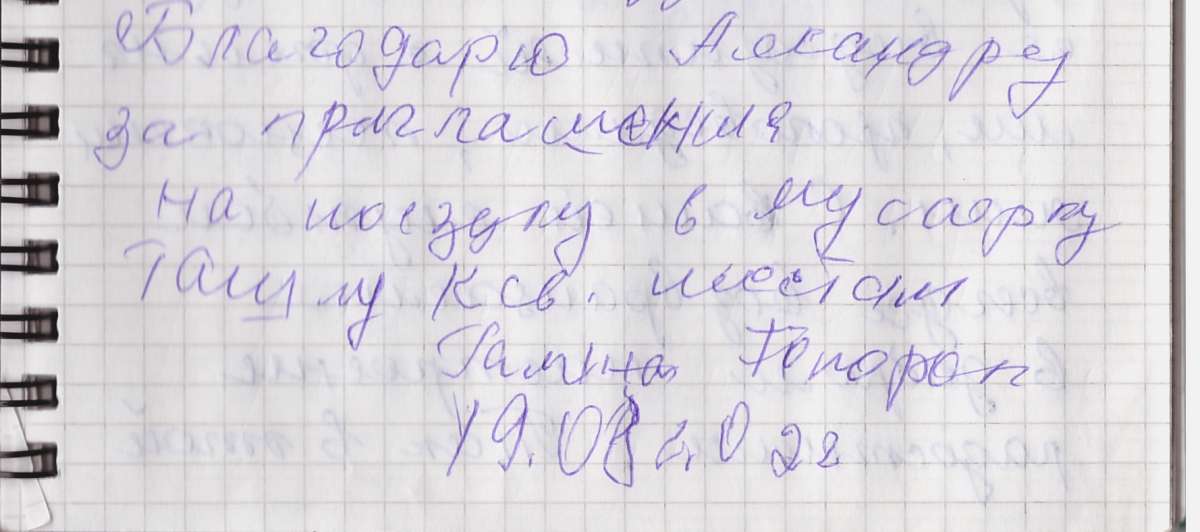 Благодарю Александру
за приглашения
на поездку в
Ташлу к св. местам
Галина
19.08 2022